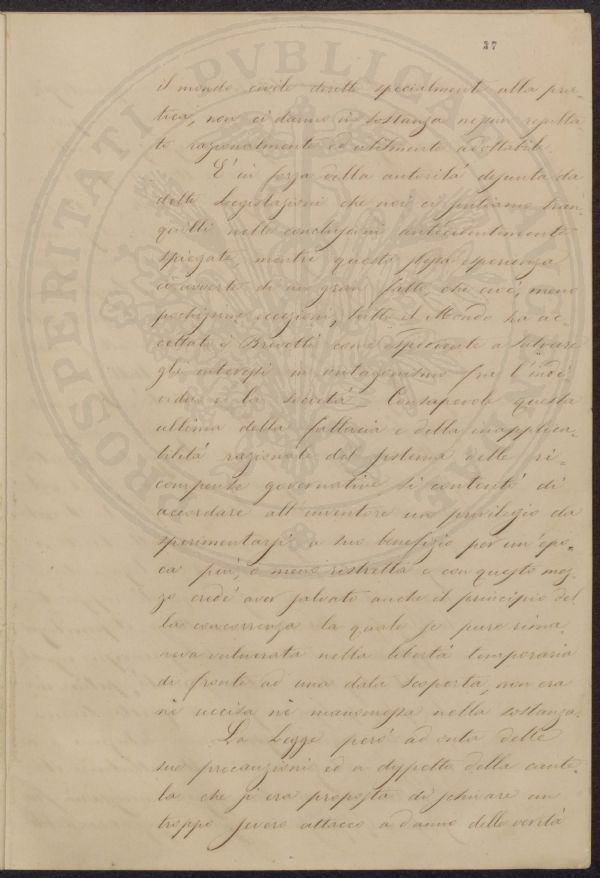 37
il mondo civile dirette specialmente alla pra-
tica, non ci danno in sostanza nessun resulta-
to razionalmente ed utilmente adottabile.
È in forza della autorità desunta da
dette Legislazioni che noi ci sentiamo tran-
quilli nelle conclusioni antecedentemente
spiegate, mentre questa stessa esperienza
ci avverte di un gran fatto che cioè, meno
pochissime eccezioni, tutto il Mondo ha ac-
cettati i Brevetti come espediente a salvare
gli interessi in antagonismo fra l'indi-
viduo e la società. Consapevole questa
ultima della fallacia e della inapplica-
bilità razionale del sistema delle ri-
compense governative si contentò di
accordare all'inventore un privilegio da
sperimentarsi a suo benefizio per un'epo-
ca più, o meno ristretta e con questo mez-
zo credè aver salvato anche il principio del
la concorrenza la quale se pure rima-
neva vulnerata nella libertà temporaria
di fronte ad una data scoperta, non era
nè uccisa nè manomessa nella sostanza.
La Legge però ad onta delle
sue precauzioni ed a dispetto della caute-
la che si era proposta di schivare un
troppo severo attacco a danno delle verità
PROSPERITATI PVBLICAE